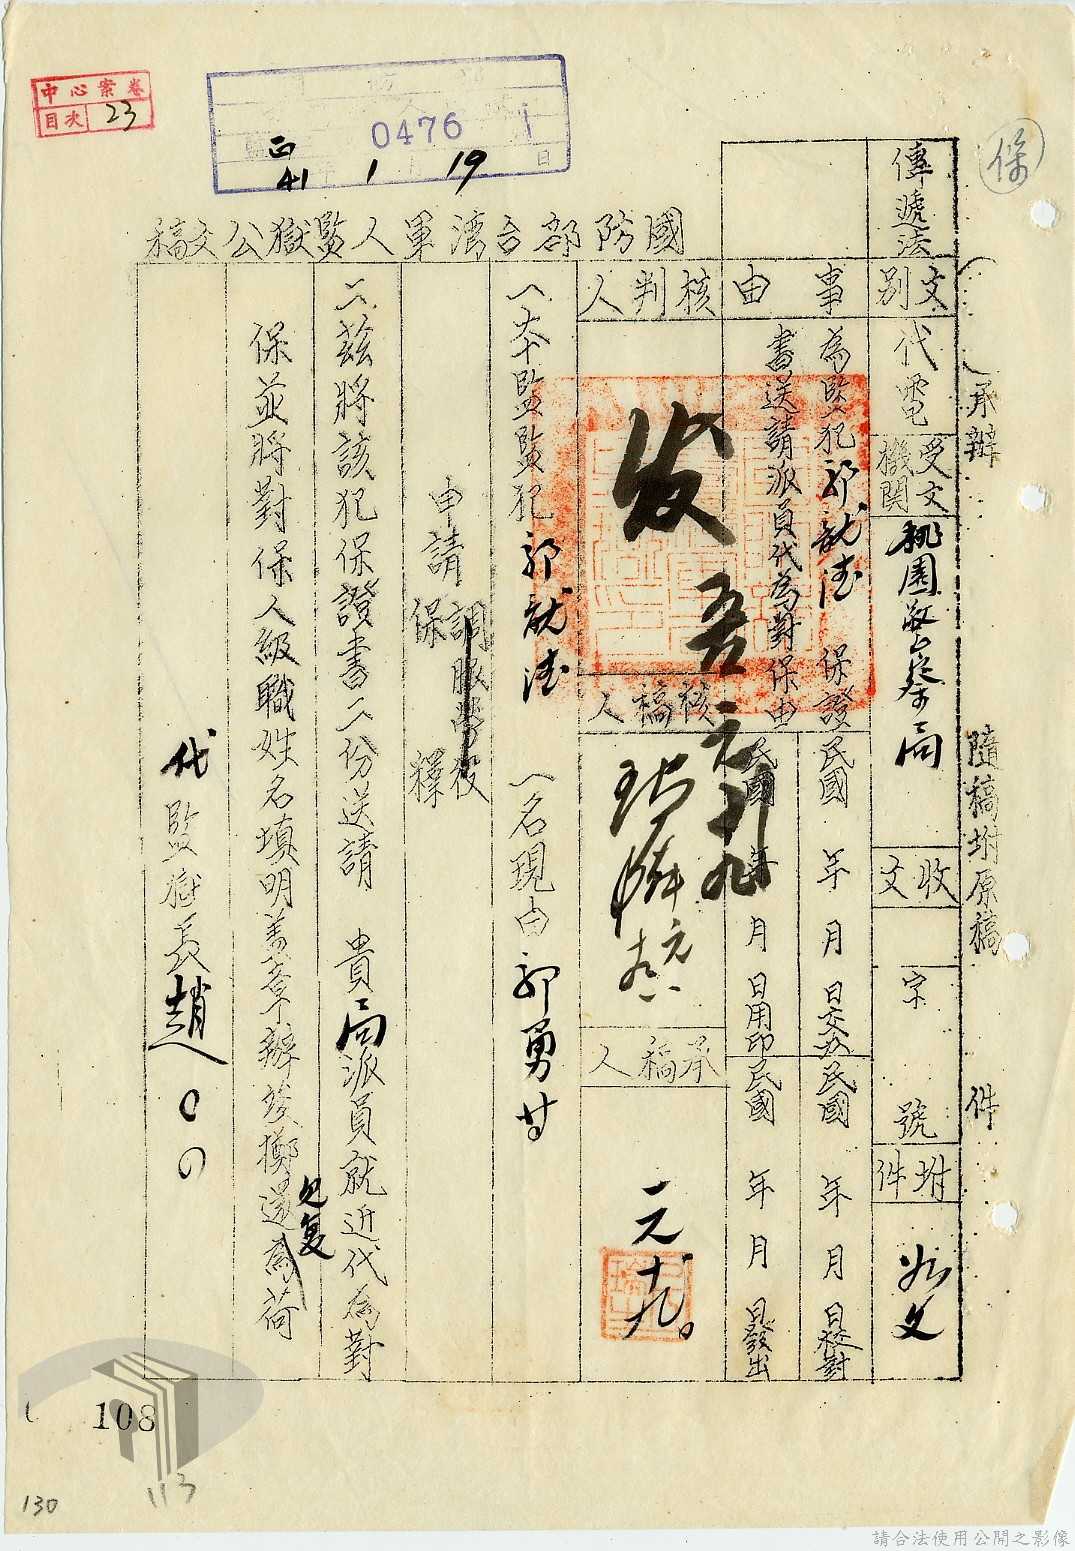 中心案卷
目次 23
0476
41 1 19 日
保
國防部台湾軍人監獄公文稿
傳遞法
文別 代電
受文機関 桃園警察局
收文 字 號
坿件 如文
承辦
隨稿坿原稿 件
事由
為監犯郭就德保證
書送請派員代為對保由
民國 年 月 日交办
民國 年 月 日校對
民國 年 月 日用印
民國 年 月 日發出
核判人
发
核稿人
承稿人
元十九
一、本監監犯郭就德一名現由郭勇
申請調服勞役
保釋
二、茲將該犯保證書二份送請 貴局派員就近代為對
保並將對保人級職姓名填明蓋章辦竣擲還為荷
見复
代監獄長趙〇〇
108
113
130
請合法使用公開之影像